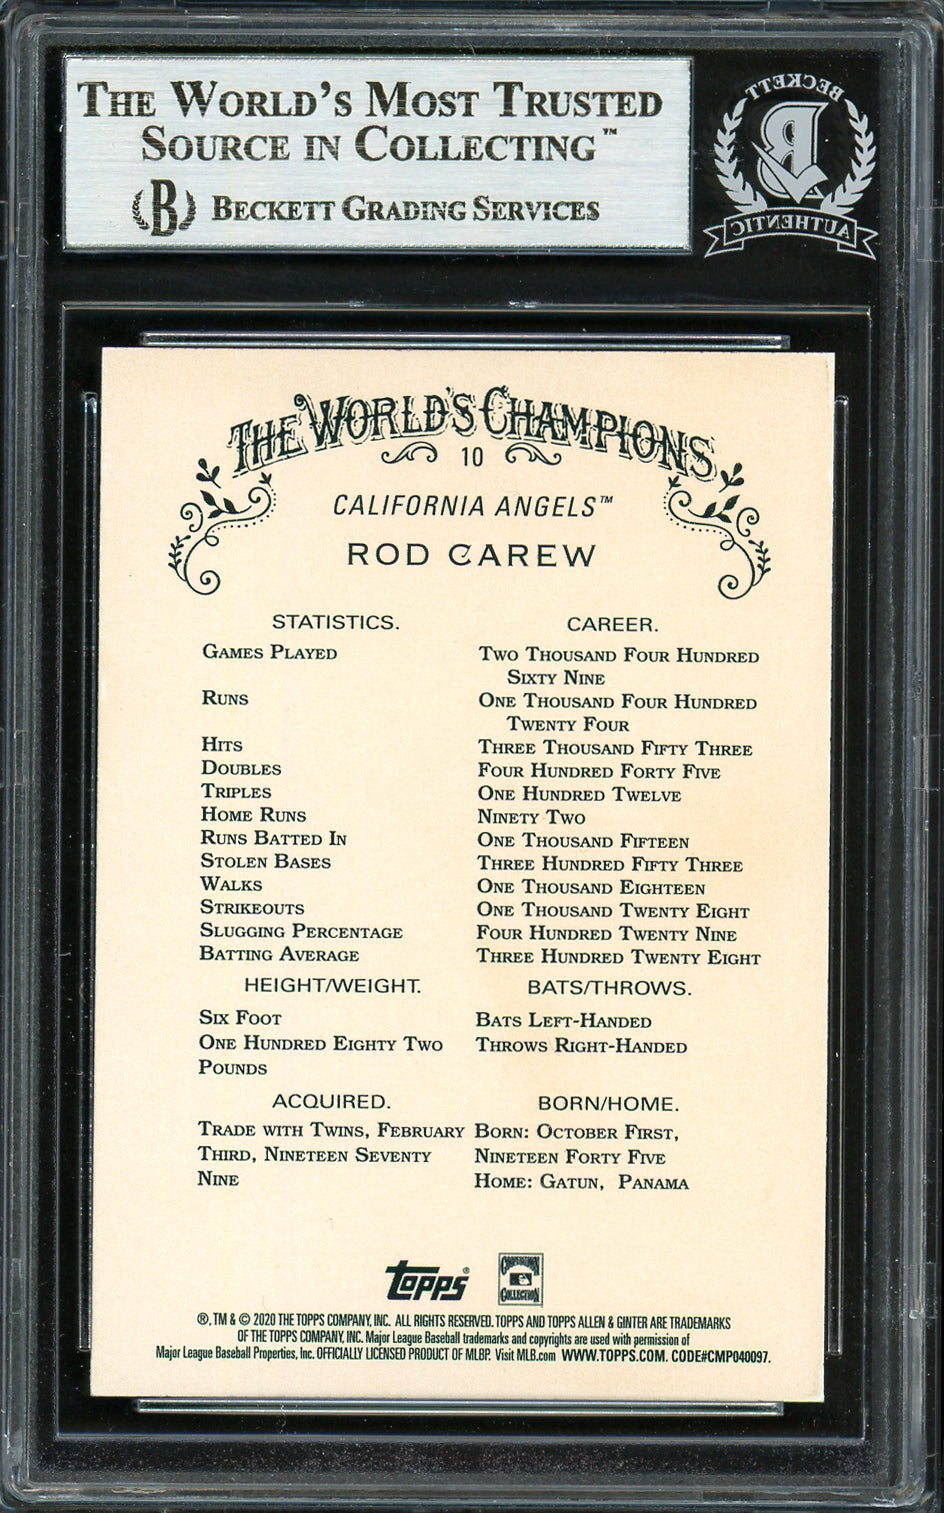 THE WORLD'S MOST TRUSTED
SOURCE IN COLLECTING™
B BECKETT GRADING SERVICES
BECKETT
B
AUTHENTIC
THE WORLD'S CHAMPIONS
10
CALIFORNIA ANGELS™
ROD CAREW
STATISTICS. CAREER.
GAMES PLAYED TWO THOUSAND FOUR HUNDRED
SIXTY NINE
RUNS ONE THOUSAND FOUR HUNDRED
TWENTY FOUR
HITS THREE THOUSAND FIFTY THREE
DOUBLES FOUR HUNDRED FORTY FIVE
TRIPLES ONE HUNDRED TWELVE
HOME RUNS NINETY TWO
RUNS BATTED IN ONE THOUSAND FIFTEEN
STOLEN BASES THREE HUNDRED FIFTY THREE
WALKS ONE THOUSAND EIGHTEEN
STRIKEOUTS ONE THOUSAND TWENTY EIGHT
SLUGGING PERCENTAGE FOUR HUNDRED TWENTY NINE
BATTING AVERAGE THREE HUNDRED TWENTY EIGHT
HEIGHT/WEIGHT. BATS/THROWS.
SIX FOOT BATS LEFT-HANDED
ONE HUNDRED EIGHTY TWO THROWS RIGHT-HANDED
POUNDS
ACQUIRED. BORN/HOME.
TRADE WITH TWINS, FEBRUARY BORN: OCTOBER FIRST,
THIRD, NINETEEN SEVENTY NINETEEN FORTY FIVE
NINE HOME: GATUN, PANAMA
Topps® COOPERSTOWN
COLLECTION
®, TM & © 2020 THE TOPPS COMPANY, INC. ALL RIGHTS RESERVED. TOPPS AND TOPPS ALLEN & GINTER ARE TRADEMARKS
OF THE TOPPS COMPANY, INC. Major League Baseball trademarks and copyrights are used with permission of
Major League Baseball Properties, Inc. OFFICIALLY LICENSED PRODUCT OF MLBP. Visit MLB.com WWW.TOPPS.COM. CODE#CMP040097.